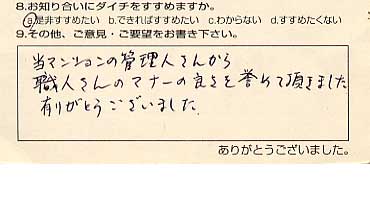 8.お知り合いにダイチをすすめますか。
a.是非すすめたい b.できればすすめたい c.わからない d.すすめたくない
9.その他、ご意見・ご要望をお書き下さい。
当マンションの管理人さんから
職人さんのマナーの良さを誉めて頂きました
有りがとうございました。
ありがとうございました。